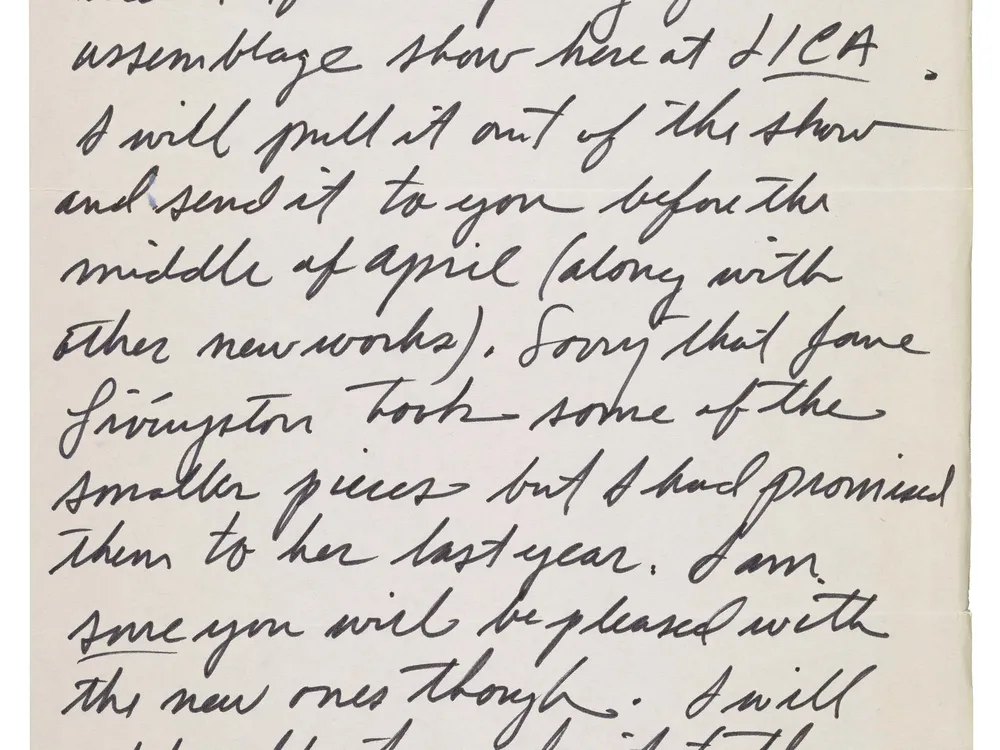 assemblage show here at LICA.
I will pull it out of the show
and send it to you before the
middle of April (along with
other new works). Sorry that Jane
Livingston took some of the
smaller pieces but I had promised
them to her last year. I am
sure you will be pleased with
the new ones though. I will